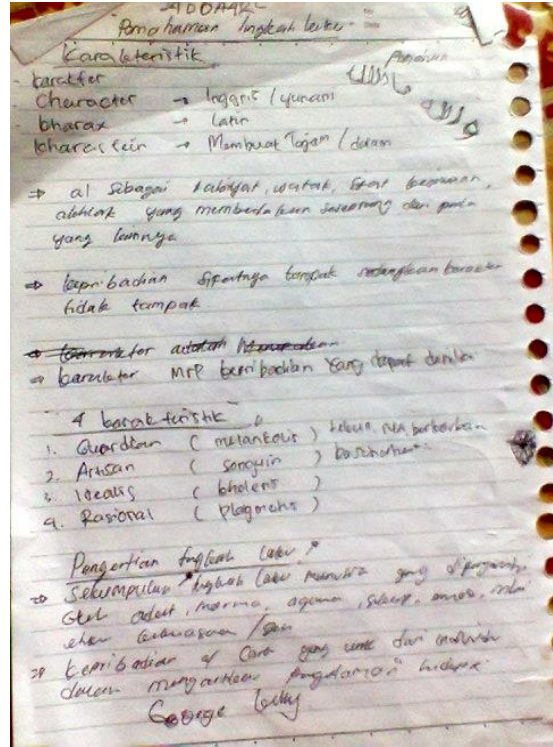 Pemahaman tingkah laku
Karakteristik
karakter
Character → Inggris / yunani
kharax → Latin
kharassein → Membuat Tajam / dalam
⇒ al sebagai tabiat, watak, sifat kejiwaan,
akhlak yang membedakan seseorang dari pada
yang lainnya
⇒ kepribadian sifatnya tampak sedangkan karakter
tidak tampak
⇒ karakter Mrp kepribadian yang dapat dinilai
4 karakteristik
1. Guardian (melankolis)
2. Artisan (sanguin)
3. Idealis (kholeris)
4. Rasional (plagmatis)
Pengertian tingkah laku
⇒ Sekumpulan tingkah laku manusia yang
oleh adat, norma, agama, sikap, emosi, nilai
etika kekuasaan /
⇒ kepribadian al Cara yang unik dari individu
dalam mengartikan pengalaman hidupx
George